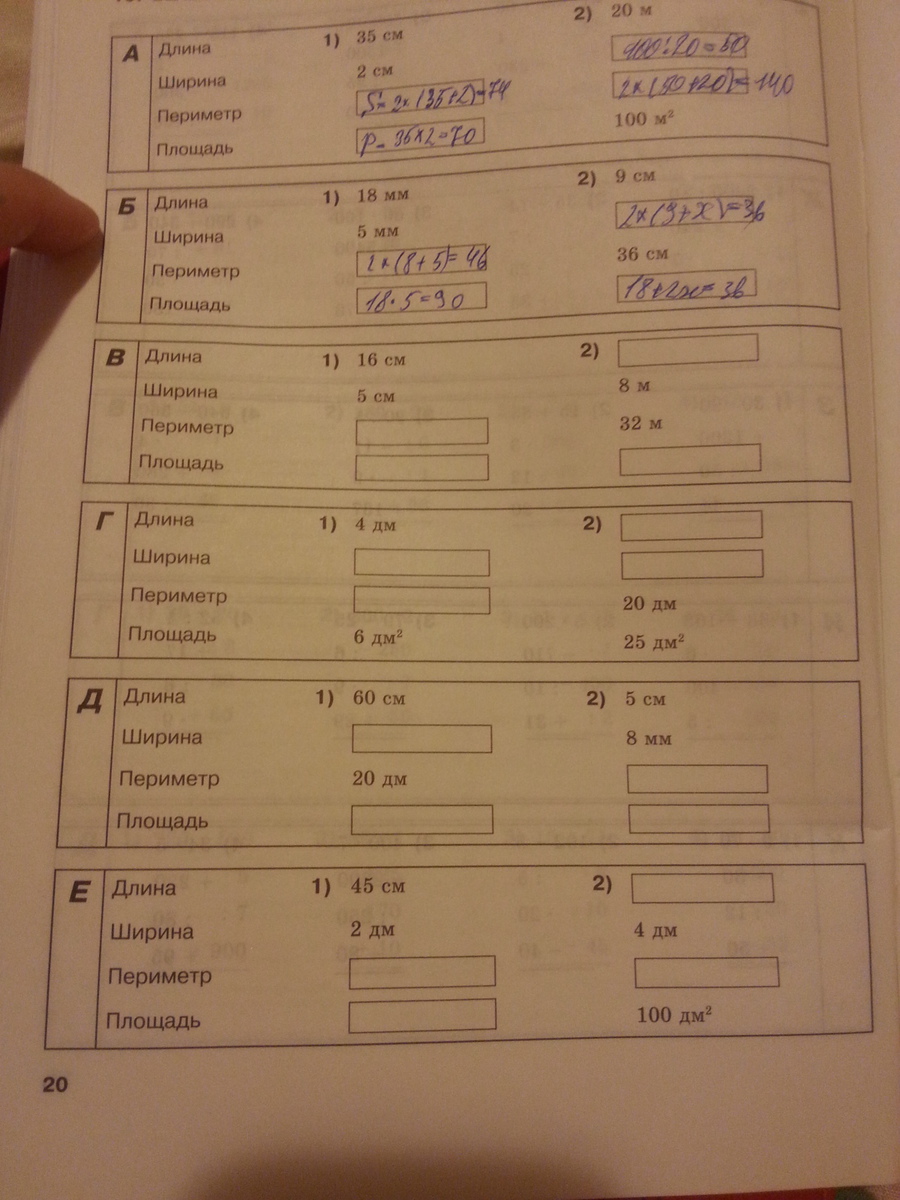 А
Длина 1) 35 см 2) 20 м
Ширина 2 см 100:20=50
Периметр S=2×(35+2)=74 2×(50+20)=140
Площадь P=35×2=70 100 м²
Б
Длина 1) 18 мм 2) 9 см
Ширина 5 мм 2×(9+x)=36
Периметр 2×(8+5)=46 36 см
Площадь 18·5=90 18+2x=36
В
Длина 1) 16 см 2)
Ширина 5 см 8 м
Периметр 32 м
Площадь
Г
Длина 1) 4 дм 2)
Ширина
Периметр 20 дм
Площадь 6 дм² 25 дм²
Д
Длина 1) 60 см 2) 5 см
Ширина 8 мм
Периметр 20 дм
Площадь
Е
Длина 1) 45 см 2)
Ширина 2 дм 4 дм
Периметр
Площадь 100 дм²
20